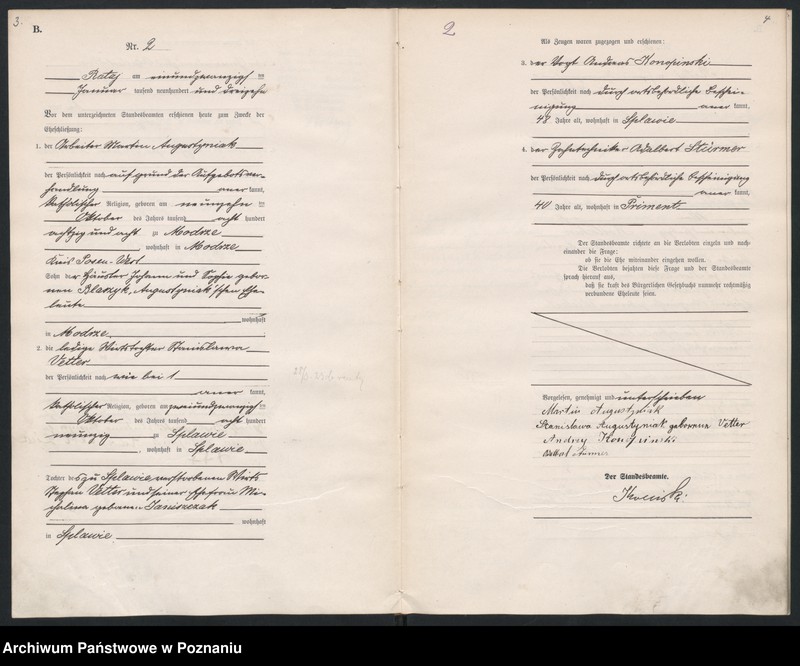 3.
B.
Nr. 2
Rataj am einundzwanzigsten
Januar tausend neunhundert und dreizehn
Vor dem unterzeichneten Standesbeamten erschienen heute zum Zwecke der
Eheschließung:
1. der Arbeiter Martin Augustyniak
der Persönlichkeit nach auf Grund der Aufgebotsver-
handlung anerkannt,
katholischer Religion, geboren am neunzehnten
Oktober des Jahres tausend acht hundert
achtzig und acht zu Modrze
, wohnhaft in Modrze,
Kreis Posen-West
Sohn der Häusler Johann und Sophie gebor-
nen Blaszyk, Augustyniak'schen Ehe-
leute
wohnhaft
in Modrze
2. die ledige Wirtstochter Stanislawa
Vetter
der Persönlichkeit nach wie bei 1
anerkannt,
katholischer Religion, geboren am zweiundzwanzigsten
Oktober des Jahres tausend acht hundert
neunzig zu Splawie
, wohnhaft in Splawie
Tochter des zu Splawie verstorbenen Wirts
Stephan Vetter und seiner Ehefrau Mi-
chalina geborenen Janiszczak
wohnhaft
in Splawie
2
4.
Als Zeugen waren zugezogen und erschienen:
3. der Vogt Andreas Konopinski
der Persönlichkeit nach durch ortsbehördliche Beschei-
nigung anerkannt,
48 Jahre alt, wohnhaft in Splawie
4. der Zahntechniker Adalbert Stürmer
der Persönlichkeit nach durch ortsbehördliche Bescheinigung
anerkannt,
40 Jahre alt, wohnhaft in Priment
Der Standesbeamte richtete an die Verlobten einzeln und nach-
einander die Frage:
ob sie die Ehe miteinander eingehen wollen.
Die Verlobten bejahten diese Frage und der Standesbeamte
sprach hierauf aus,
daß sie kraft des Bürgerlichen Gesetzbuchs nunmehr rechtmäßig
verbundene Eheleute seien.
Vorgelesen, genehmigt und unterschrieben
Martin Augustyniak
Stanislawa Augustyniak geborene Vetter
Andrzej Konopinski
Der Standesbeamte.
Archiwum Państwowe w Poznaniu